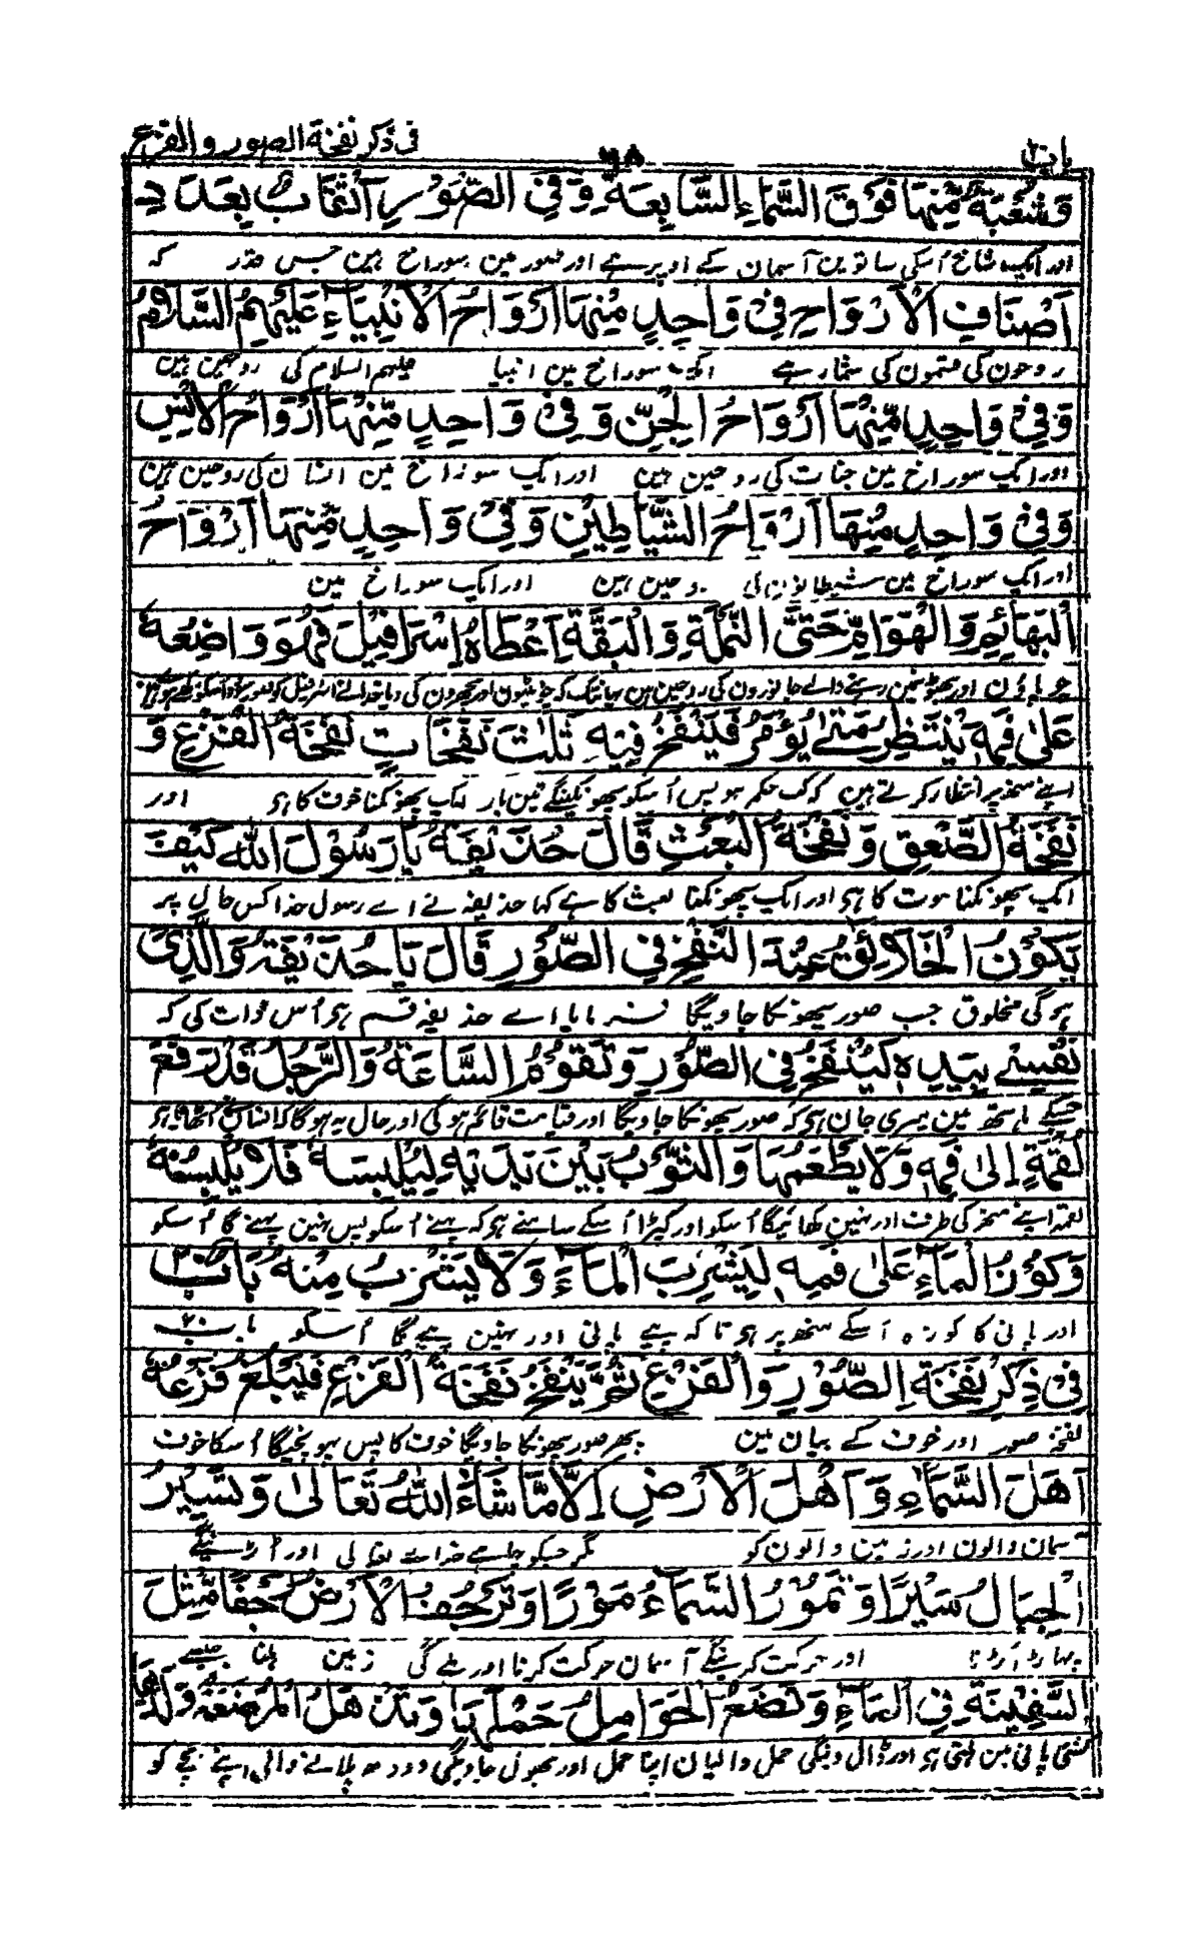 باب ٢٠ ٦٨ فى ذكر نفخة الصور والفزع
وَشُعْبَةٌ مِّنْهَا فَوْقَ السَّمَاءِ السَّابِعَةِ وَفِي الصُّوْرِ اَثْقَابٌ بِعَدَدِ
اور ایک شاخ اُسکی ساتوین آسمان کے اوپر ہے اور صور مین سوراخ ہین جس قدر کہ
اَصْنَافِ الْاَرْوَاحِ فِيْ وَاحِدٍ مِّنْهَا اَرْوَاحُ الْاَنْبِيَآءِ عَلَيْهِمُ السَّلَامُ
روحون کی قسمون کی شمار ہے ایک سوراخ مین انبیا علیہم السلام کی روحین ہین
وَفِيْ وَاحِدٍ مِّنْهَا اَرْوَاحُ الْجِنِّ وَفِيْ وَاحِدٍ مِّنْهَا اَرْوَاحُ الْاِنْسِ
اور ایک سوراخ مین جنات کی روحین ہین اور ایک سوراخ مین انسان کی روحین ہین
وَفِيْ وَاحِدٍ مِّنْهَا اَرْوَاحُ الشَّيَاطِيْنِ وَفِيْ وَاحِدٍ مِّنْهَا اَرْوَاحُ
اور ایک سوراخ مین شیطانون کی روحین ہین اور ایک سوراخ مین
الْبَهَائِمِ وَالْهَوَامِّ حَتَّى النَّمْلَةِ وَالْبَقَّةِ اَعْطَاهُ اِسْرَافِيْلَ فَهُوَ وَاضِعُهٗ
چوپاؤن اور رہنے والے جانورون کی روحین ہین یہانتک کہ چیونٹیون اور مچھرون کی دیا خدا نے اسرافیل کو صور
عَلٰى فَمِهٖ يَنْتَظِرُ مَتٰى يُؤْمَرُ فَيَنْفُخُ فِيْهِ ثَلٰثَ نَفَخَاتٍ نَفْخَةُ الْفَزَعِ وَ
اپنے منھ پر انتظار کرتے ہین کہ کب حکم ہو پس اُسکو پھونکینگے تین بار ایک پھونکنا خوف کا ہی اور
نَفْخَةُ الصَّعْقِ وَنَفْخَةُ الْبَعْثِ قَالَ حُذَيْفَةُ يَا رَسُوْلَ اللّٰهِ كَيْفَ
ایک پھونکنا موت کا ہی اور ایک پھونکنا بعث کا ہے کہا حذیفہ نے اے رسول خدا کس حال پر
يَكُوْنُ الْخَلَائِقُ عِنْدَ النَّفْخِ فِي الصُّوْرِ قَالَ يَا حُذَيْفَةُ وَالَّذِيْ
ہوگی مخلوق جب صور پھونکا جاویگا فرمایا اے حذیفہ قسم ہی اُس ذات کی کہ
نَفْسِيْ بِيَدِهٖ لَيُنْفَخُ فِي الصُّوْرِ وَتَقُوْمُ السَّاعَةُ وَالرَّجُلُ قَدْ رَفَعَ
جسکے ہاتھ مین میری جان ہی کہ صور پھونکا جاویگا اور قیامت قائم ہوگی اور حال یہ ہوگا کہ انسان اٹھائے ہی
لُقْمَةً اِلٰى فَمِهٖ وَلَا يَطْعَمُهَا وَالثَّوْبُ بَيْنَ يَدَيْهِ لِيَلْبِسَهٗ فَلَا يَلْبِسُهٗ
لقمہ اپنے منھ کی طرف اور نہین کھائیگا اُسکو اور کپڑا اُسکے سامنے ہی کہ پہنے اُسکو پس نہین پہنے گا اُسکو
وَكُوْزُ الْمَآءِ عَلٰى فَمِهٖ لِيَشْرِبَ الْمَآءَ وَلَا يَشْرَبُ مِنْهُ بَابٌ ٢٠
اور پانی کا کوزہ اُسکے منھ پر ہی تاکہ پیے پانی اور نہین پیے گا اُسکو باب ٢٠
فِيْ ذِكْرِ نَفْخَةِ الصُّوْرِ وَالْفَزَعِ ثُمَّ يَنْفَخُ نَفْخَةُ الْفَزَعِ فَيَبْلُغُ فَزَعُهٗ
نفخہ صور اور خوف کے بیان مین پھر صور پھونکا جاویگا خوف کا پس پہونچیگا اُسکا خوف
اَهْلَ السَّمَاءِ وَاَهْلَ الْاَرْضِ اِلَّا مَا شَاءَ اللّٰهُ تَعَالٰى وَتَسِيْرُ
آسمان والون اور زمین والون کو مگر جسکو چاہے خداے تعالی اور اُڑینگے
الْجِبَالُ سَيْرًا وَتَمُوْرُ السَّمَآءُ مَوْرًا وَتَرْجُفُ الْاَرْضُ رَجْفًا مِّثْلَ
پہاڑ اُڑنا اور حرکت کرینگے آسمان حرکت کرنا اور ہلے گی زمین ہلنا جیسے
السَّفِيْنَةِ فِي الْمَآءِ وَتَضَعُ الْحَوَامِلُ حَمْلَهَا وَتَذْهَلُ الْمُرْضِعَةُ وَلَدَهَا
کشتی پانی مین ہلتی ہی اور ڈال دینگی حمل والیان اپنا حمل اور بھول جاوینگی دودھ پلانے والی اپنے بچے کو